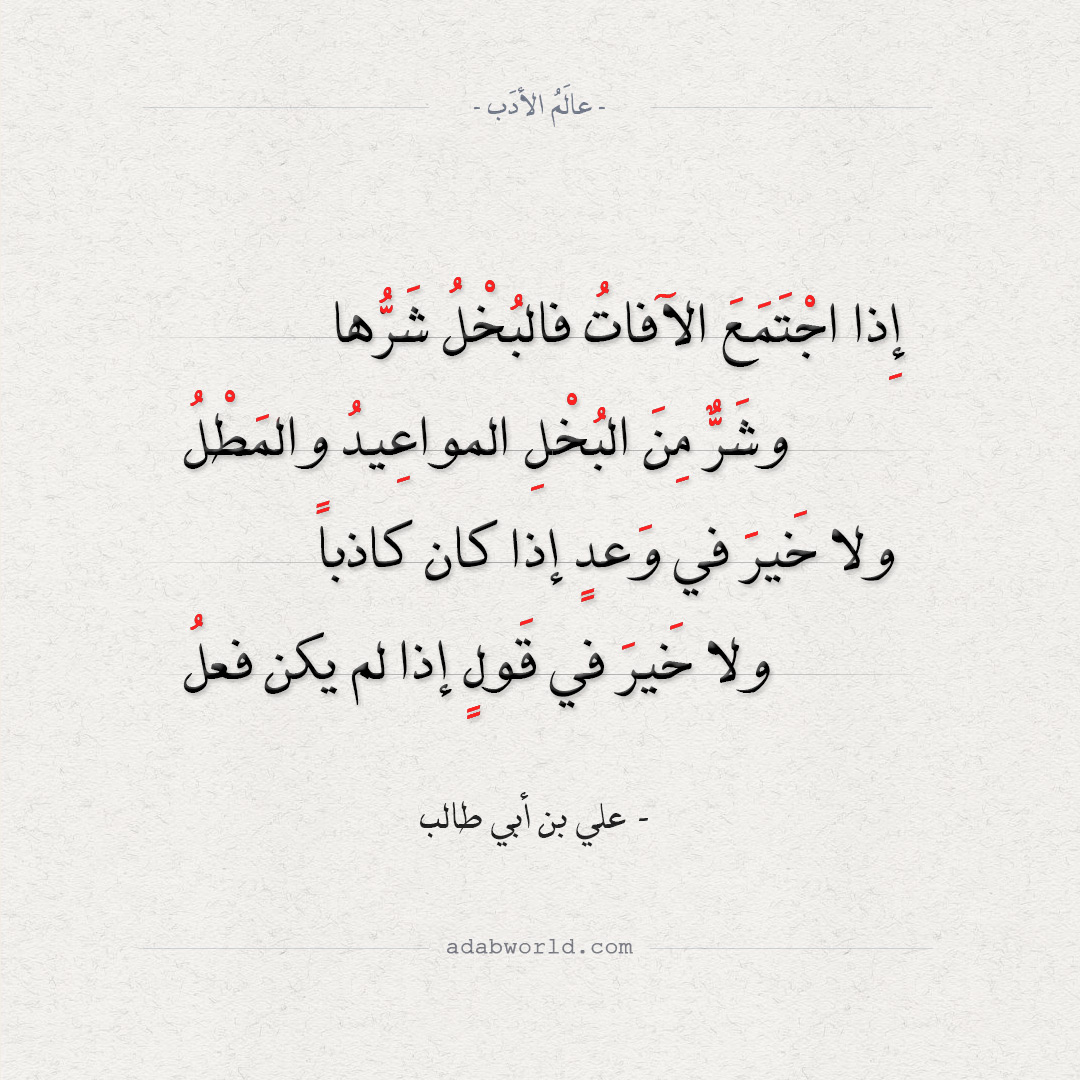 - عالَمُ الأدَب -
إِذا اجْتَمَعَ الآفاتُ فالبُخْلُ شَرُّها
وشَرٌّ مِنَ البُخْلِ المواعِيدُ والمَطْلُ
ولا خَيرَ في وَعدٍ إذا كان كاذباً
ولا خَيرَ في قَولٍ إذا لم يكن فعلُ
- علي بن أبي طالب
adabworld.com